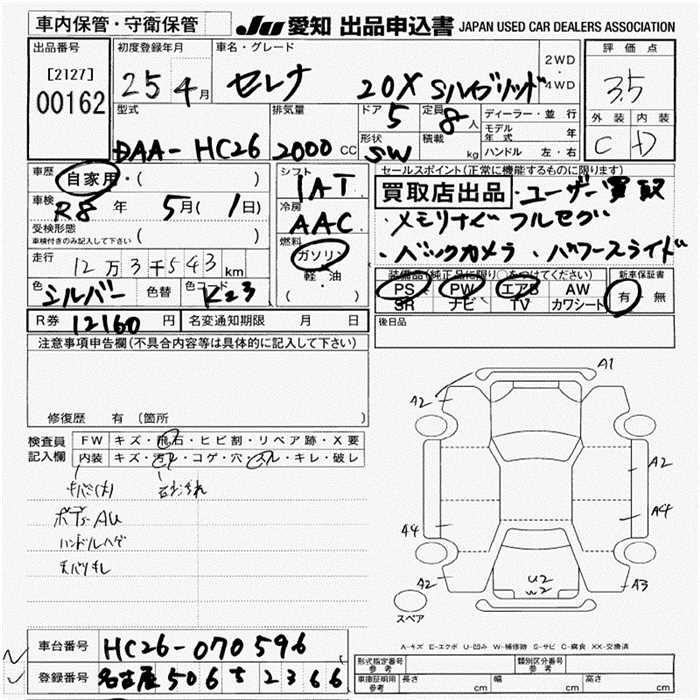 車内保管・守衛保管
JU 愛知 出品申込書 JAPAN USED CAR DEALERS ASSOCIATION
出品番号
[2127]
00162
初度登録年月
25 4月
車名・グレード
セレナ 20X Sハイブリッド
2WD
・
4WD
評価点
3.5
外装 内装
C D
型式
DAA-HC26
排気量
2000 CC
ドア 5
定員 8人
形状 SW
積載 kg
ディーラー・並行
モデル年式 年
ハンドル 左・右
車歴 自家用・( )
車検 R8年 5月(1日)
受検形態
車検付きのみ記入して下さい ( )
走行 12万3千543km
色 シルバー 色替 色コード K23
シフト
IAT
冷房
AAC
燃料
ガソリン
軽・油
( )
セールスポイント(正常に機能するものに限ります)
買取店出品・ユーザー買取
・メモリナビ フルセグ
・バックカメラ ・パワースライド
装備品(純正品に限り○をつけてください)
PS PW エアB AW
SR ナビ TV カワシート
新車保証書
有・無
R券 12160円
名変通知期限 月 日
後日品
注意事項申告欄(不具合内容等は具体的に記入して下さい)
修復歴 有 (箇所
検査員
記入欄
FW キズ・飛石・ヒビ割・リペア跡・X要
内装 キズ・汚レ・コゲ・穴・スレ・キレ・破レ
ボデーAU
ハンドルハゲ
A1
A2
A2
A4
A4
A2
A3
U2
W2
スペア
A-キズ E-エクボ U-凹み W-補修跡 S-サビ C-腐食 XX-交換済
車台番号 HC26-070596
登録番号 名古屋 506 す 2366
形式指定番号
参考
類別区分番号
参考
車庫証明用
参考
長さ cm 幅 cm 高さ cm